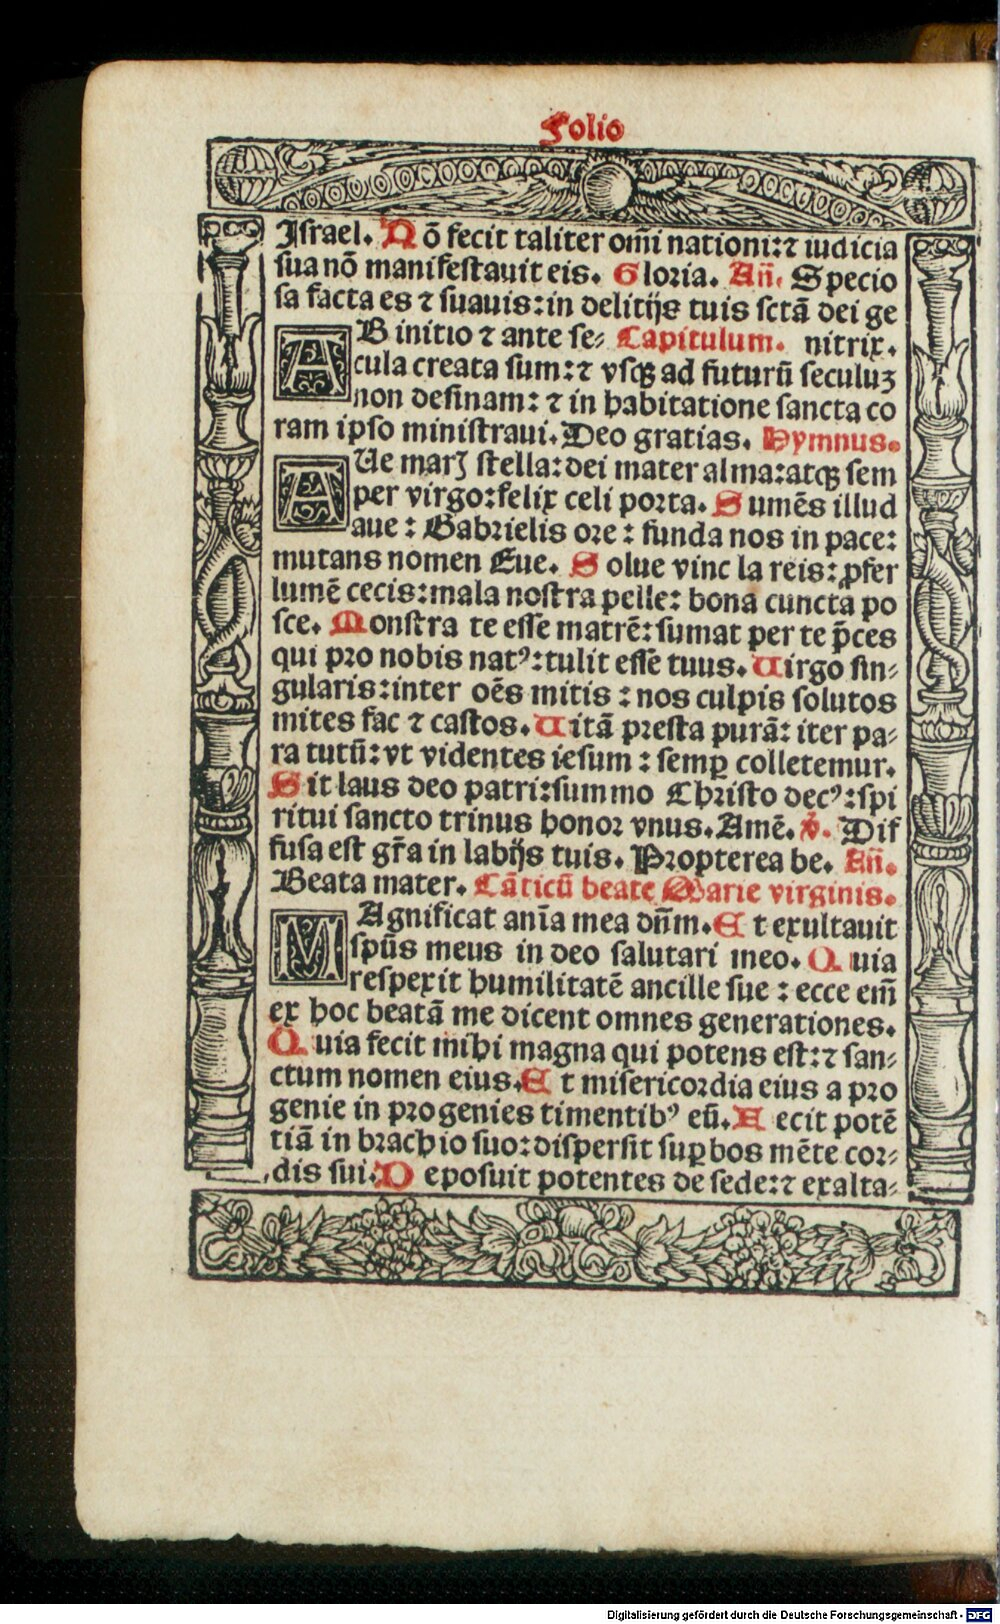 Folio
Israel. Nō fecit taliter om̄i nationi:⁊ iudicia
sua nō manifestauit eis. Gloria. An̄. Specio
sa facta es ⁊ suauis:in delitijs tuis sctā dei ge
AB initio ⁊ ante se⸗ Capitulum. nitrix.
cula creata sum:⁊ vsqꝫ ad futurū seculuꝫ
non desinam: ⁊ in habitatione sancta co
ram ipso ministraui. Deo gratias. Hymnus.
AUe marJ stella:dei mater alma:atqꝫ sem
per virgo:felix celi porta. Sumēs illud
aue : Gabrielis ore : funda nos in pace:
mutans nomen Eue. Solue vinc la reis: ꝓfer
lumē cecis:mala nostra pelle: bona cuncta po
sce. Monstra te esse matrē:sumat per te p̄ces
qui pro nobis natꝰ:tulit esse tuus. Uirgo sin⸗
gularis:inter oēs mitis : nos culpis solutos
mites fac ⁊ castos. Uitā presta purā: iter pa⸗
ra tutū:vt videntes iesum : semꝑ colletemur.
Sit laus deo patri:summo Christo decꝰ:spi
ritui sancto trinus honor vnus. Amē. ℣. Dif
fusa est gr̄a in labijs tuis. Propterea be. An̄.
Beata mater. Cāticū beate Marie virginis.
MAgnificat anīa mea dn̄m. Et exultauit
spūs meus in deo salutari meo. Quia
respexit humilitatē ancille sue : ecce em̄
ex hoc beatā me dicent omnes generationes.
Quia fecit mihi magna qui potens est:⁊ san⸗
ctum nomen eius. Et misericordia eius a pro
genie in progenies timentibꝰ eū. Fecit potē
tiā in brachio suo:dispersit suꝑbos mēte cor⸗
dis sui. Deposuit potentes de sede:⁊ exalta⸗
Digitalisierung gefördert durch die Deutsche Forschungsgemeinschaft - DFG